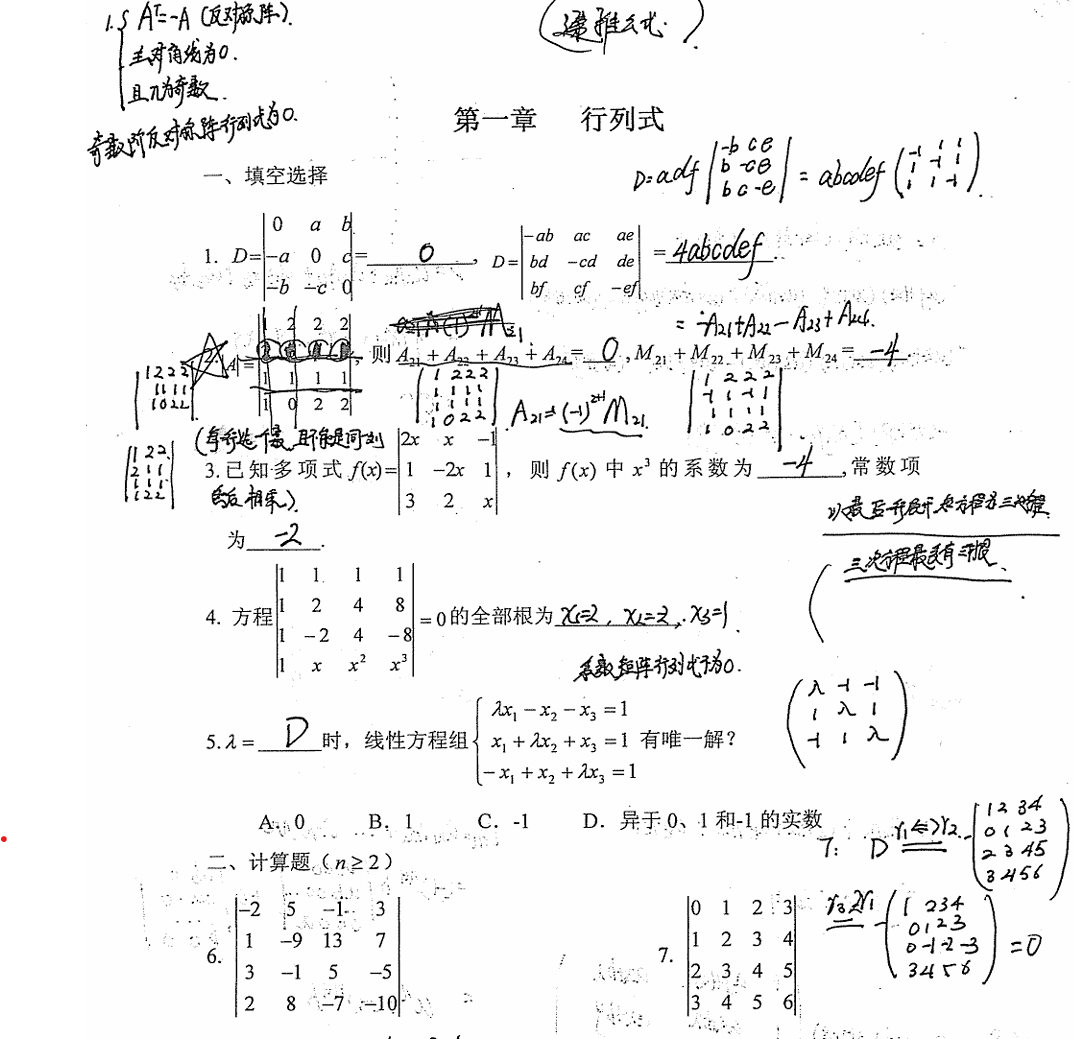 1. { Aᵀ=-A (反对称阵).
主对角线为0.
且n为奇数.
奇数阶反对称阵行列式为0.
递推公式?
第一章 行列式
一、填空选择
D=adf |-b c e; b -c e; b c -e| = abcdef (-1 1 1; 1 -1 1; 1 1 -1).
1. D=|0 a b; -a 0 c; -b -c 0|= 0 , D=|-ab ac ae; bd -cd de; bf cf -ef| = 4abcdef .
= -A21+A22-A23+A24.
|1 2 2 2; 1 1 1 1; 1 0 2 2|, 则 A21+A22+A23+A24= 0 , M21+M22+M23+M24= -4
|1 2 2 2; 1 1 1 1; 1 0 2 2|.
(1 2 2 2; 1 1 1 1; 1 1 1 1; 1 0 2 2). A21=(-1)²⁺¹M21.
|1 2 2 2; -1 1 -1 1; 1 1 1 1; 1 0 2 2|.
|1 2 2; 2 1 1; 1 1 1; 1 2 2|
3.已知多项式 f(x)=|2x x -1; 1 -2x 1; 3 2 x|, 则 f(x) 中 x³ 的系数为 -4 ,常数项
相乘)
为 -2 .
三次方程最多有三个根、
4. 方程|1 1 1 1; 1 2 4 8; 1 -2 4 -8; 1 x x² x³|=0的全部根为 x1=2, x2=-2, x3=1 .
系数矩阵行列式不为0.
5.λ= D 时，线性方程组{λx1-x2-x3=1; x1+λx2+x3=1; -x1+x2+λx3=1 有唯一解?
(λ -1 -1; 1 λ 1; -1 1 λ)
A. 0 B. 1 C. -1 D. 异于 0、1 和-1 的实数
二、计算题（n≥2）
7: D r1<=>r2 -(1 2 3 4; 0 1 2 3; 2 3 4 5; 3 4 5 6)
6. |-2 5 -1 3; 1 -9 13 7; 3 -1 5 -5; 2 8 -7 -10|
7. |0 1 2 3; 1 2 3 4; 2 3 4 5; 3 4 5 6|
r3-2r1 -(1 2 3 4; 0 1 2 3; 0 -1 -2 -3; 3 4 5 6) =0